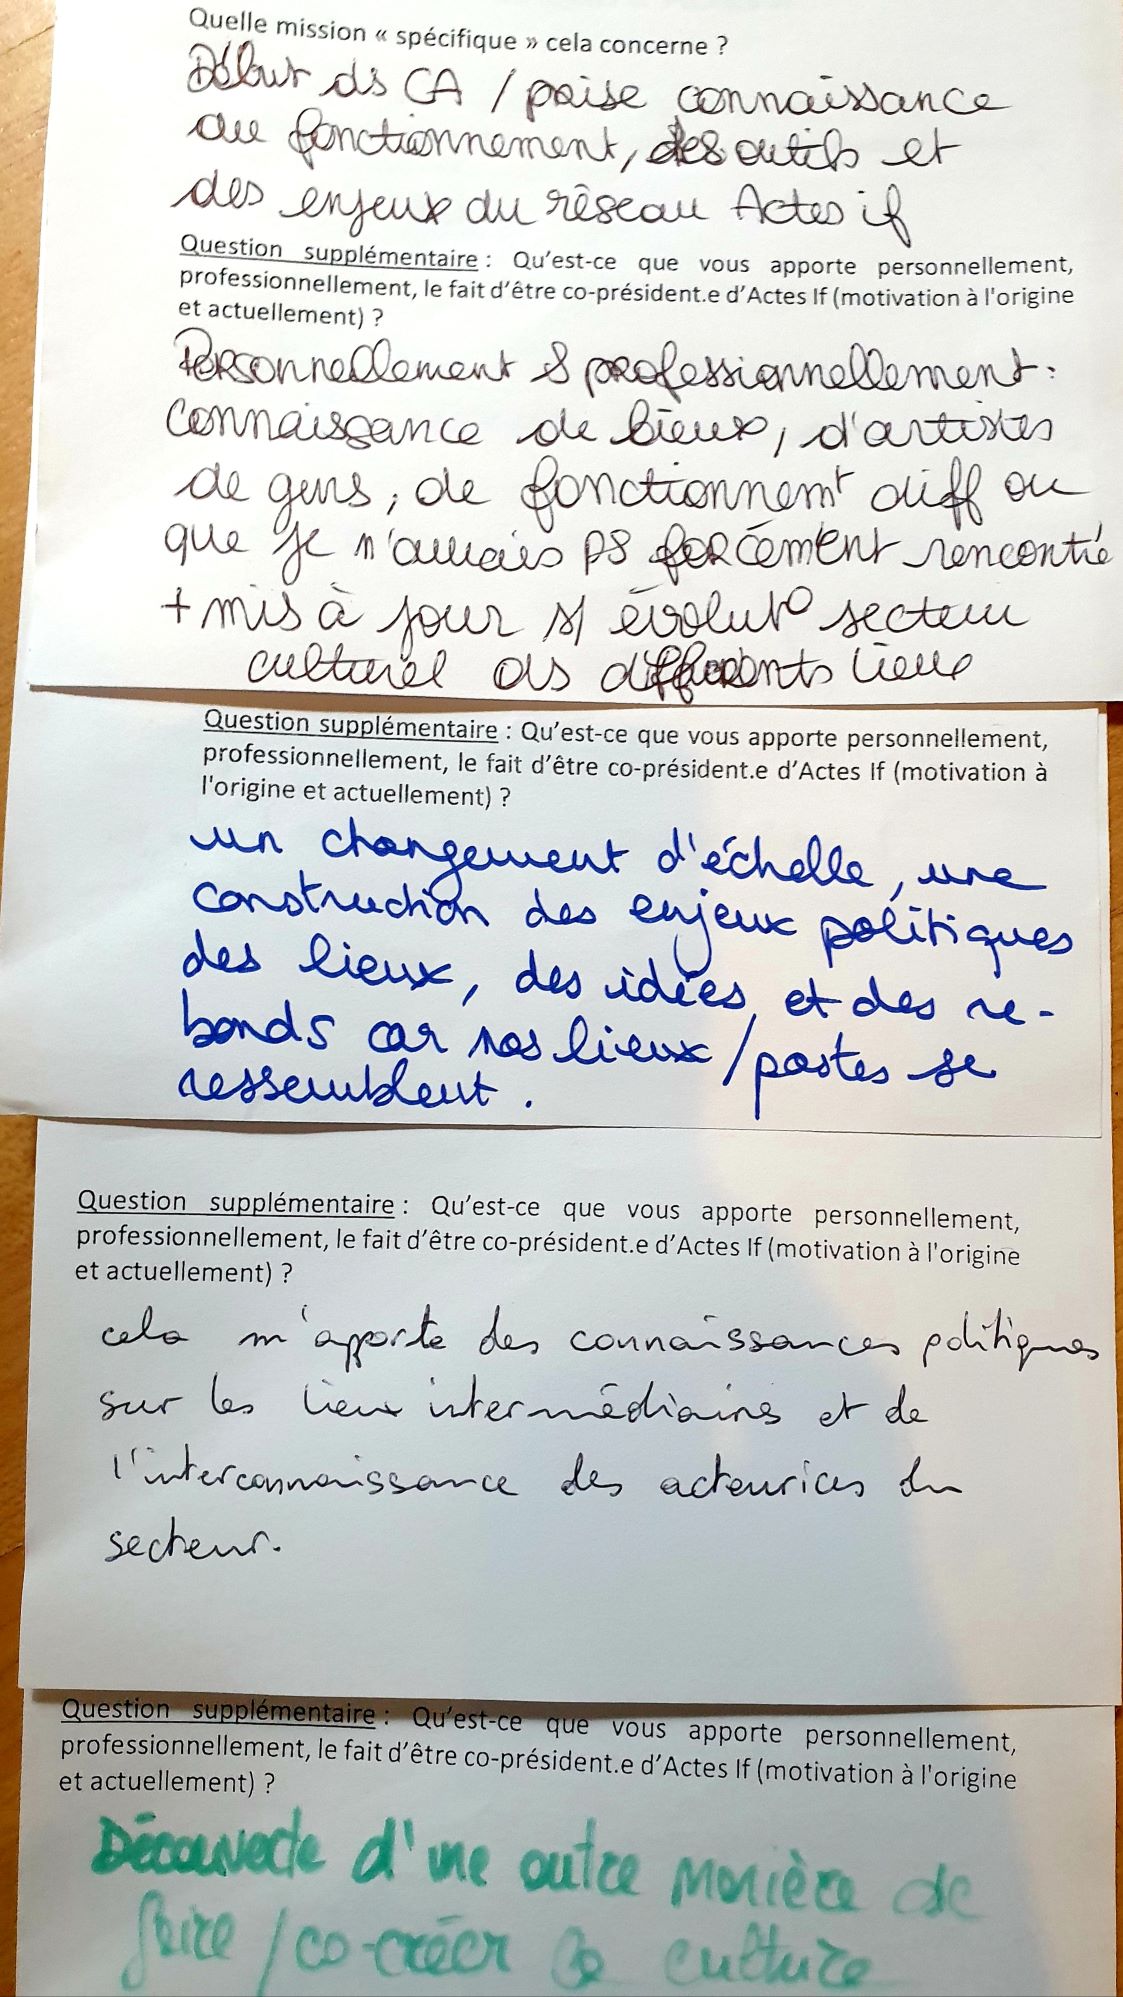 Quelle mission « spécifique » cela concerne ?
Début ds CA / prise connaissance
du fonctionnement, des outils et
des enjeux du réseau Actes if
Question supplémentaire : Qu'est-ce que vous apporte personnellement,
professionnellement, le fait d'être co-président.e d'Actes If (motivation à l'origine
et actuellement) ?
Personnellement & professionnellement :
connaissance de lieux, d'artistes
de gens, de fonctionnemt diff ou
que je n'aurais ps forcément rencontré
+ mis à jour s/ évolut° secteur
culturel ds différents lieux
Question supplémentaire : Qu'est-ce que vous apporte personnellement,
professionnellement, le fait d'être co-président.e d'Actes If (motivation à
l'origine et actuellement) ?
un changement d'échelle, une
construction des enjeux politiques
des lieux, des idées, et des re-
bonds car nos lieux / postes se
ressemblent.
Question supplémentaire : Qu'est-ce que vous apporte personnellement,
professionnellement, le fait d'être co-président.e d'Actes If (motivation à l'origine
et actuellement) ?
cela m'apporte des connaissances politiques
sur les lieux intermédiaires et de
l'interconnaissance des acteurices du
secteur.
Question supplémentaire : Qu'est-ce que vous apporte personnellement,
professionnellement, le fait d'être co-président.e d'Actes If (motivation à l'origine
et actuellement) ?
Découverte d'une autre manière de
faire / co-créer la culture